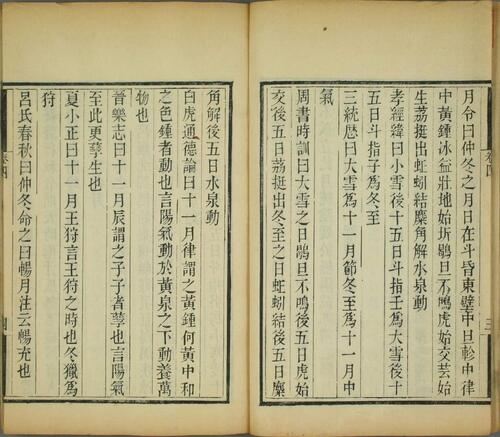 月令曰仲冬之月日在斗昏東壁中旦軫中律
中黃鍾冰益壯地始坼鶡旦不鳴虎始交芸始
生荔挺出蚯蚓結麋角解水泉動
孝經緯曰小雪後十五日斗指壬爲大雪後十
五日斗指子爲冬至
三統歷曰大雪爲十一月節冬至爲十一月中
氣
周書時訓曰大雪之日鶡旦不鳴後五日虎始
交後五日荔挺出冬至之日蚯蚓結後五日麋
角解後五日水泉動
白虎通德論曰十一月律謂之黃鍾何黃中和
之色鍾者動也言陽氣動於黃泉之下動養萬
物也
晉樂志曰十一月辰謂之子子者孳也言陽氣
至此更孳生也
夏小正曰十一月王狩言王狩之時也冬獵爲
狩
呂氏春秋曰仲冬命之曰暢月注云暢充也
卷四